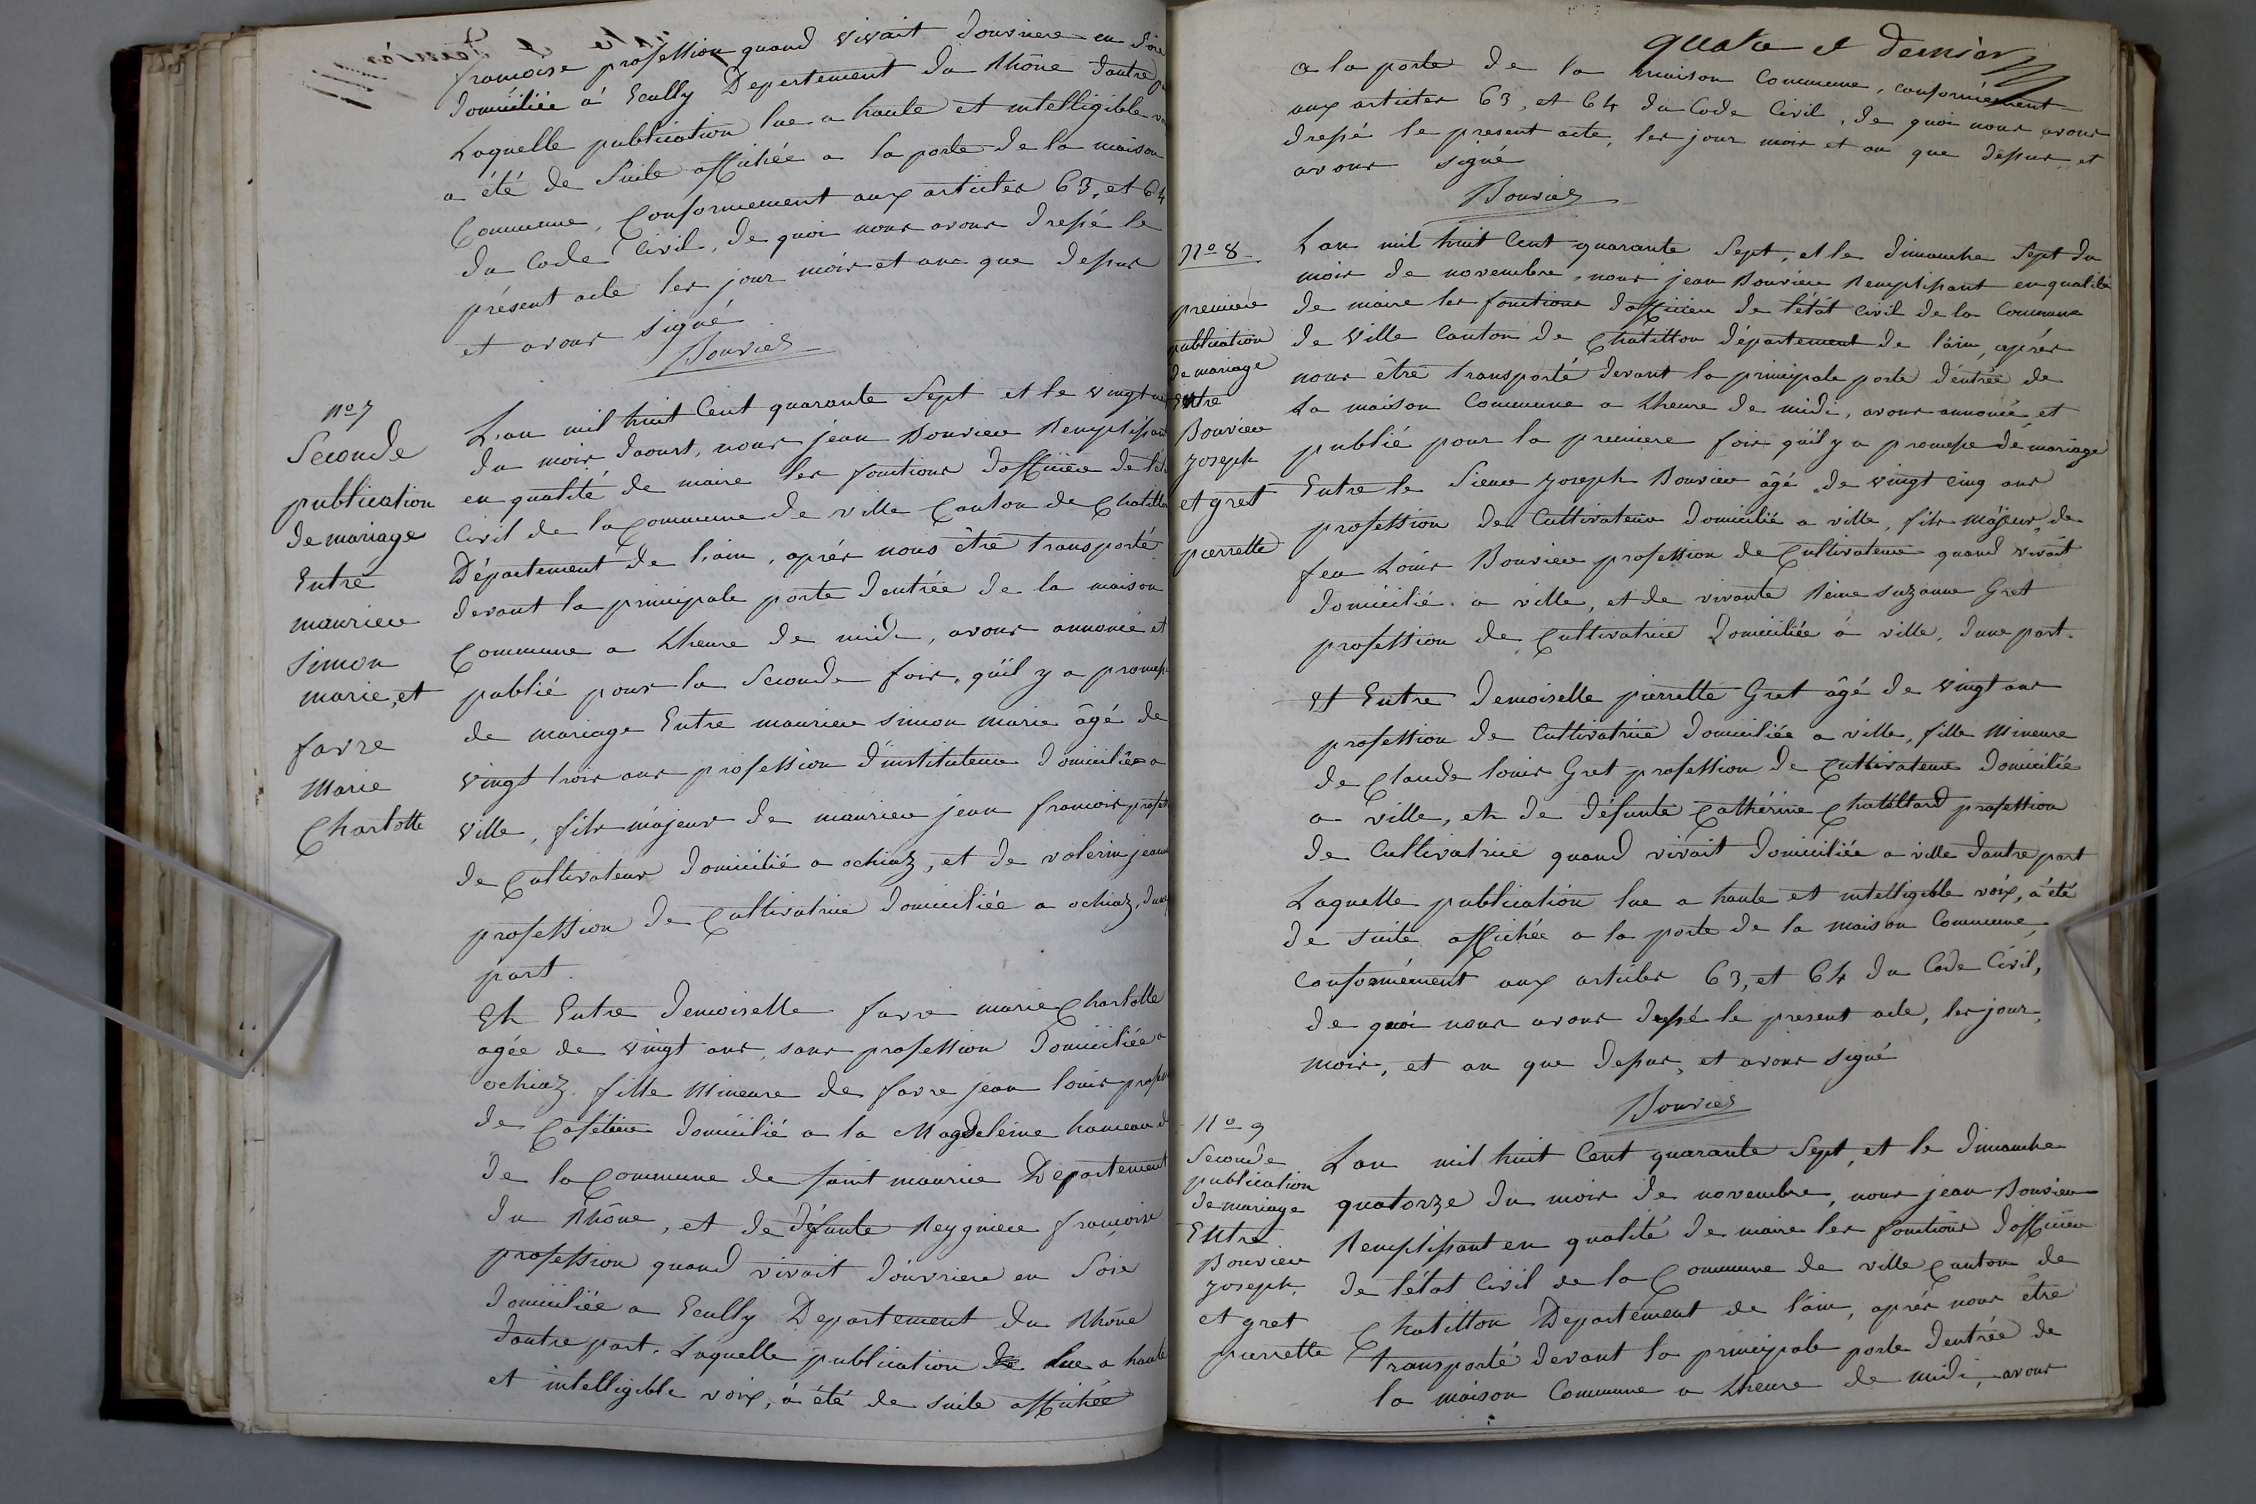 françoise profession quand vivait d'ouvriere en Soie
domiciliée à Ecully Departement du Rhône dautre
Laquelle publication lue a haute et intelligible
a été de Suite affichée a la porte de la maison
Commune, Conformement aux articles 63, et 64
du Code Civil, de quoi nous avons dressé le
présent acte les jour mois et an que dessus
et avons signé
Bouvier
n° 7
Seconde
publication
de mariage
Entre
maurier
simon
marie, et
favre
Marie
Charlotte
L'an mil huit Cent quarante Sept et le vingt
du mois daoust, nous jean Bouvier Remplissant
en qualité de maire les fonctions dofficier de
Civil de la Commune de ville Canton de Chatillon
Département de l'ain, après nous être transporté
devant la principale porte dentrée de la maison
Commune a Lheure de midi, avons annoncé et
publié pour la Seconde fois, qu'il y a promesse
de mariage Entre maurier simon marie âgé de
vingt trois ans profession d'instituteur domicilié a
ville, fils majeur de maurier jean françois
de Cultivateur domicilié a ochiaz, et de volerin
profession de Cultivatrice domiciliée a ochiaz, dune
part.
Et Entre demoiselle favre marie Charlotte
agée de vingt ans, sans profession domiciliée a
ochiaz. fille Mineure de favre jean louis
de Cafetier domicilié a la Magdeleine hameau
de la Commune de saint maurice Département
du Rhône, et de défunte Reygnier françoise
profession quand vivait d'ouvriere en Soie
domiciliée a Ecully Departement du Rhône
dautre part. Laquelle publication lue a haute
et intelligible voix, à été de suite affichée
quatre et dernier
a la porte de la maison Commune, conformément
aux articles 63, et 64 du Code Civil, de quoi nous avons
dressé le present acte, les jour mois et an que dessus, et
avons signé
Bouvier
N° 8
premiere
publication
de mariage
Entre
Bouvier
joseph
et gret
pierrette
L'an mil huit Cent quarante Sept, et le dimanche Sept du
mois de novembre, nous jean Bouvier Remplissant en qualité
de maire les fonctions d'officier de l'état Civil de la Commune
de Ville Canton de Chatillon département de l'ain, après
nous être transporté devant la principale porte d'entrée de
La maison Commune a Lheure de midi, avons annoncé et
publié pour la premiere fois qu'il y a promesse de mariage
Entre le Sieur joseph Bouvier âgé de vingt cinq ans
profession de Cultivateur domicilié a ville, fils majeur, de
feu Louis Bouvier profession de Cultivateur quand vivait
domicilié a ville, et de vivante Reine suzanne Gret
profession de Cultivatrice domiciliée à ville, d'une part.
Et Entre demoiselle pierrette Gret âgé de vingt ans
profession de Cultivatrice domiciliée a ville, fille Mineure
de Claude louis Gret profession de Cultivateur domicilié
a ville, et de défunte Cathérine Chatéllard profession
de Cultivatrice quand vivait domiciliée a ville dautre part
Laquelle publication lue a haute et intelligible voix, a été
de suite affichée a la porte de la maison Commune,
conformément aux articles 63, et 64 du Code Civil,
de quoi nous avons dressé le present acte, les jour,
mois, et an que dessus, et avons signé
Bouvier
N° 9
Seconde
publication
de mariage
Entre
Bouvier
joseph,
et gret
pierrette
L'an mil huit Cent quarante Sept, et le dimanche
quatorze du mois de novembre, nous jean Bouvier
Remplissant en qualité de maire les fonctions d'officier
de l'état Civil de la Commune de ville Canton de
Chatillon Departement de l'ain, après nous être
transporté devant la principale porte d'entrée de
la maison Commune a Lheure de midi, avons